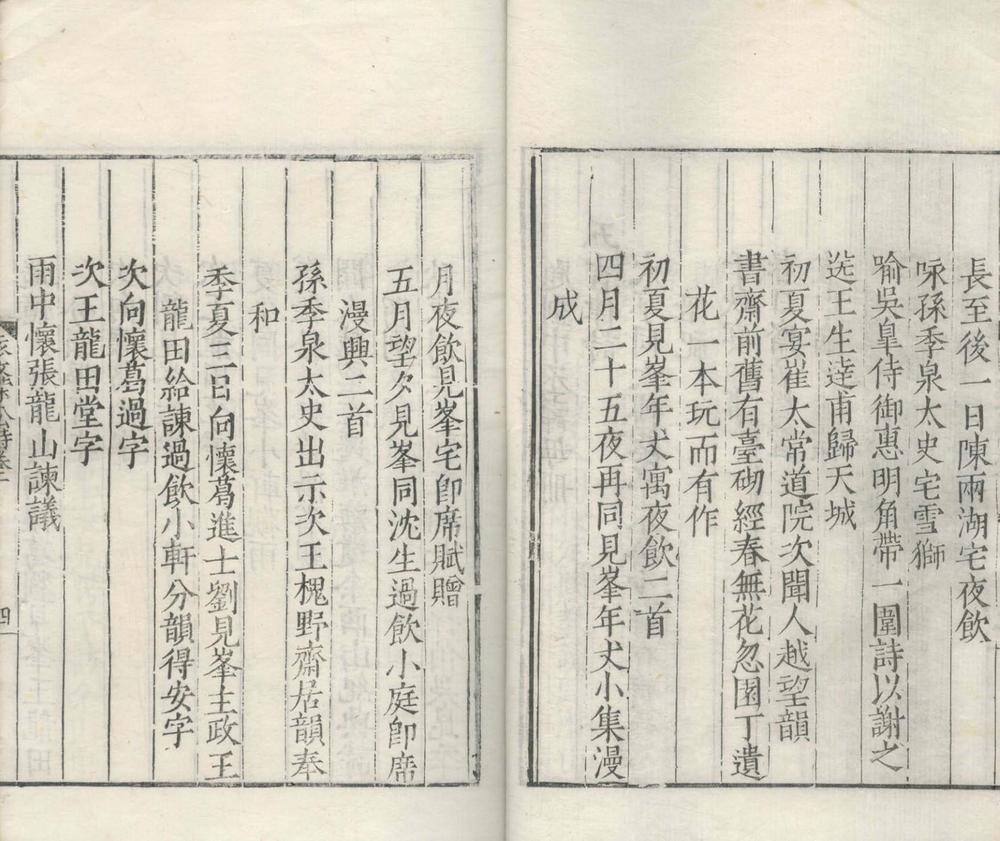 長至後一日陳兩湖宅夜飲
咏孫季泉太史宅雪獅
喻吳皇侍御惠明角帶一圍詩以謝之
送王生達甫歸天城
初夏宴崔太常道院次聞人越望韻
書齋前舊有臺砌經春無花忽園丁遺
花一本玩而有作
初夏見峯年丈寓夜飲二首
四月二十五夜再同見峯年丈小集漫
成
月夜飲見峯宅卽席賦贈
五月望夕見峯同沈生過飲小庭卽席
漫興二首
孫季泉太史出示次王槐野齋居韻奉
和
季夏三日向懷葛進士劉見峯主政王
龍田給諫過飲小軒分韻得安字
次向懷葛過字
次王龍田堂字
雨中懷張龍山諫議
四